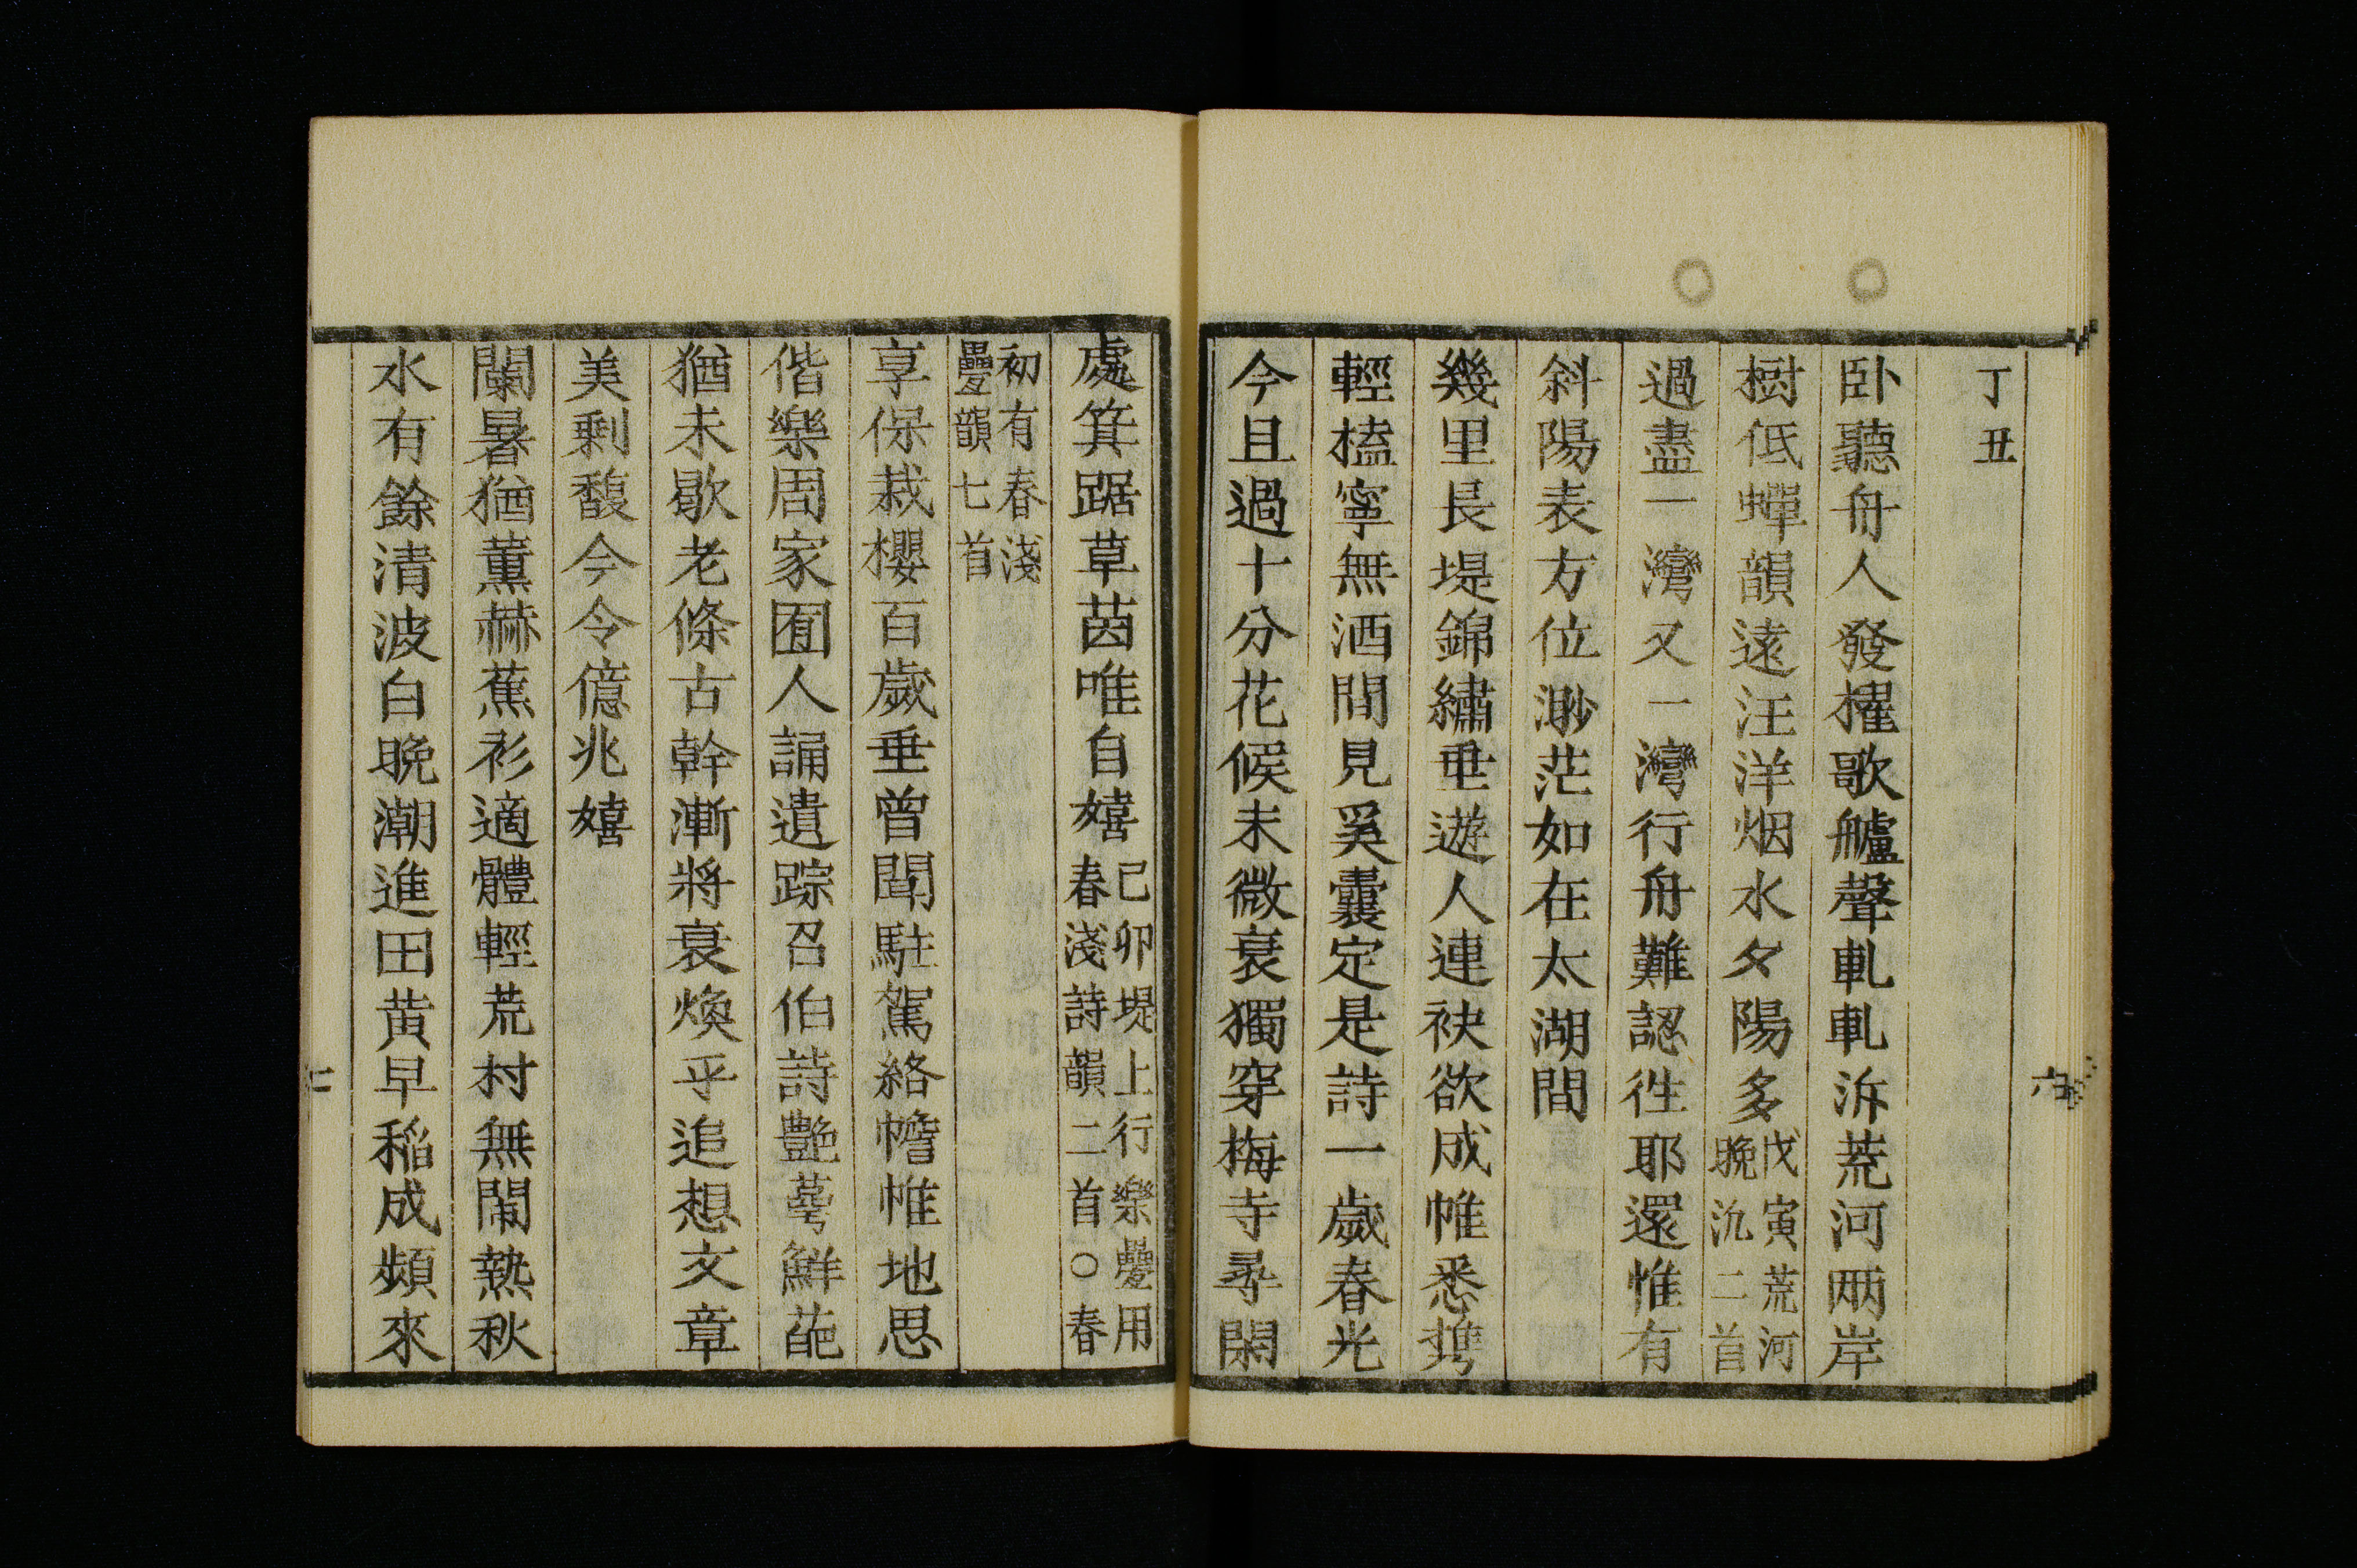 丁丑
卧聽舟人發櫂歌艫聲軋軋泝荒河兩岸
樹低蟬韻遠汪洋烟水夕陽多戊寅荒河
晚氿二首
過盡一灣又一灣行舟難認徃耶還惟有
斜陽表方位渺茫如在太湖間
幾里長堤錦繡垂遊人連袂欲成帷悉携
輕榼寧無酒間見奚囊定是詩一歲春光
今且過十分花候未微衰獨穿梅寺尋閑
六
處箕踞草茵唯自嬉己卯堤上行樂疊用
春淺詩韻二首○春
初有春淺
疊韻七首
享保栽櫻百歲垂曾聞駐駕絡幨帷地思
偕樂周家囿人誦遺踪召伯詩艷萼鮮葩
猶未歇老條古幹漸將衰煥乎追想文章
美剩馥今令億兆嬉
闌暑猶薰赫蕉衫適體輕荒村無鬧熱秋
水有餘清波白晚潮進田黃早稻成頻來
七